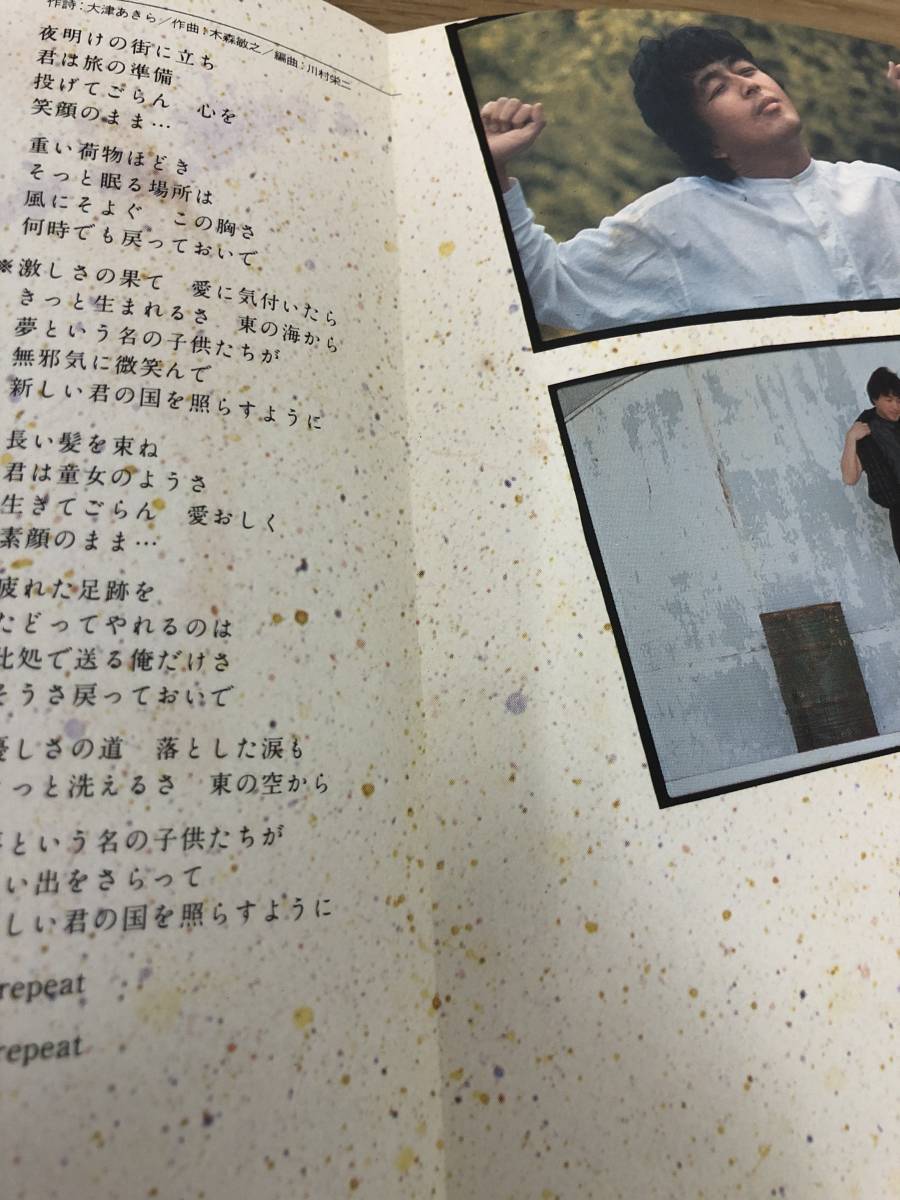 作詩:大津あきら/作曲:木森敏之/編曲:川村栄二
夜明けの街に立ち
君は旅の準備
投げてごらん 心を
笑顔のまま…
重い荷物ほどき
そっと眠る場所は
風にそよぐ この胸さ
何時でも戻っておいで
※激しさの果て 愛に気付いたら
きっと生まれるさ 東の海から
夢という名の子供たちが
無邪気に微笑んで
新しい君の国を照らすように
長い髪を束ね
君は童女のようさ
生きてごらん 愛おしく
素顔のまま…
疲れた足跡を
たどってやれるのは
此処で送る俺だけさ
そうさ戻っておいで
優しさの道 落とした涙も
っと洗えるさ 東の空から
という名の子供たちが
い出をさらって
しい君の国を照らすように
repeat
repeat